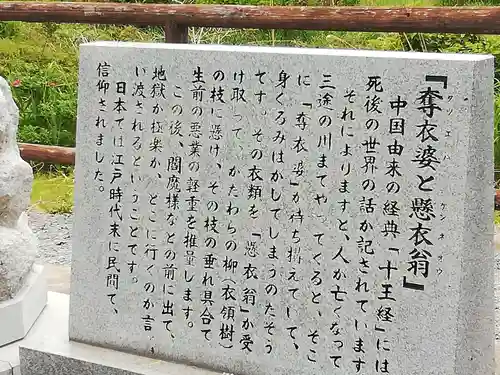 「奪衣婆と懸衣翁」
ダツエバ ケンエオウ
中国由来の経典「十王経」には
死後の世界の話が記されています
それによりますと、人が亡くなって
三途の川までやってくると、そこ
に「奪衣婆」が待ち構えていて、
身ぐるみはがしてしまうのだそう
です。その衣類を「懸衣翁」が受
け取って、かたわらの柳(衣領樹)
の枝に懸け、その枝の垂れ具合で
生前の悪業の軽重を推量します。
この後、閻魔様などの前に出て、
地獄か極楽か、どこに行くのか言
い渡されるということです。
日本では江戸時代末に民間で、
信仰されました。